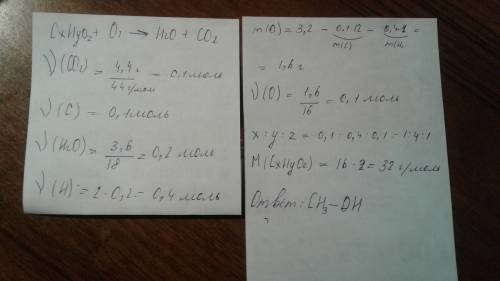 CxHyO₂ + O₂ → H₂O + CO₂
ν(CO₂) = 4,4 г / 44 г/моль = 0,1 моль
ν(C) = 0,1 моль
ν(H₂O) = 3,6 / 18 = 0,2 моль
ν(H) = 2 · 0,2 = 0,4 моль
m(O) = 3,2 - 0,1·12 - 0,4·1 =
m(C) m(H)
= 1,6 г
ν(O) = 1,6 / 16 = 0,1 моль
x : y : z = 0,1 : 0,4 : 0,1 = 1:4:1
M(CxHyO₂) = 16 · 2 = 32 г/моль
Ответ: CH₃-OH